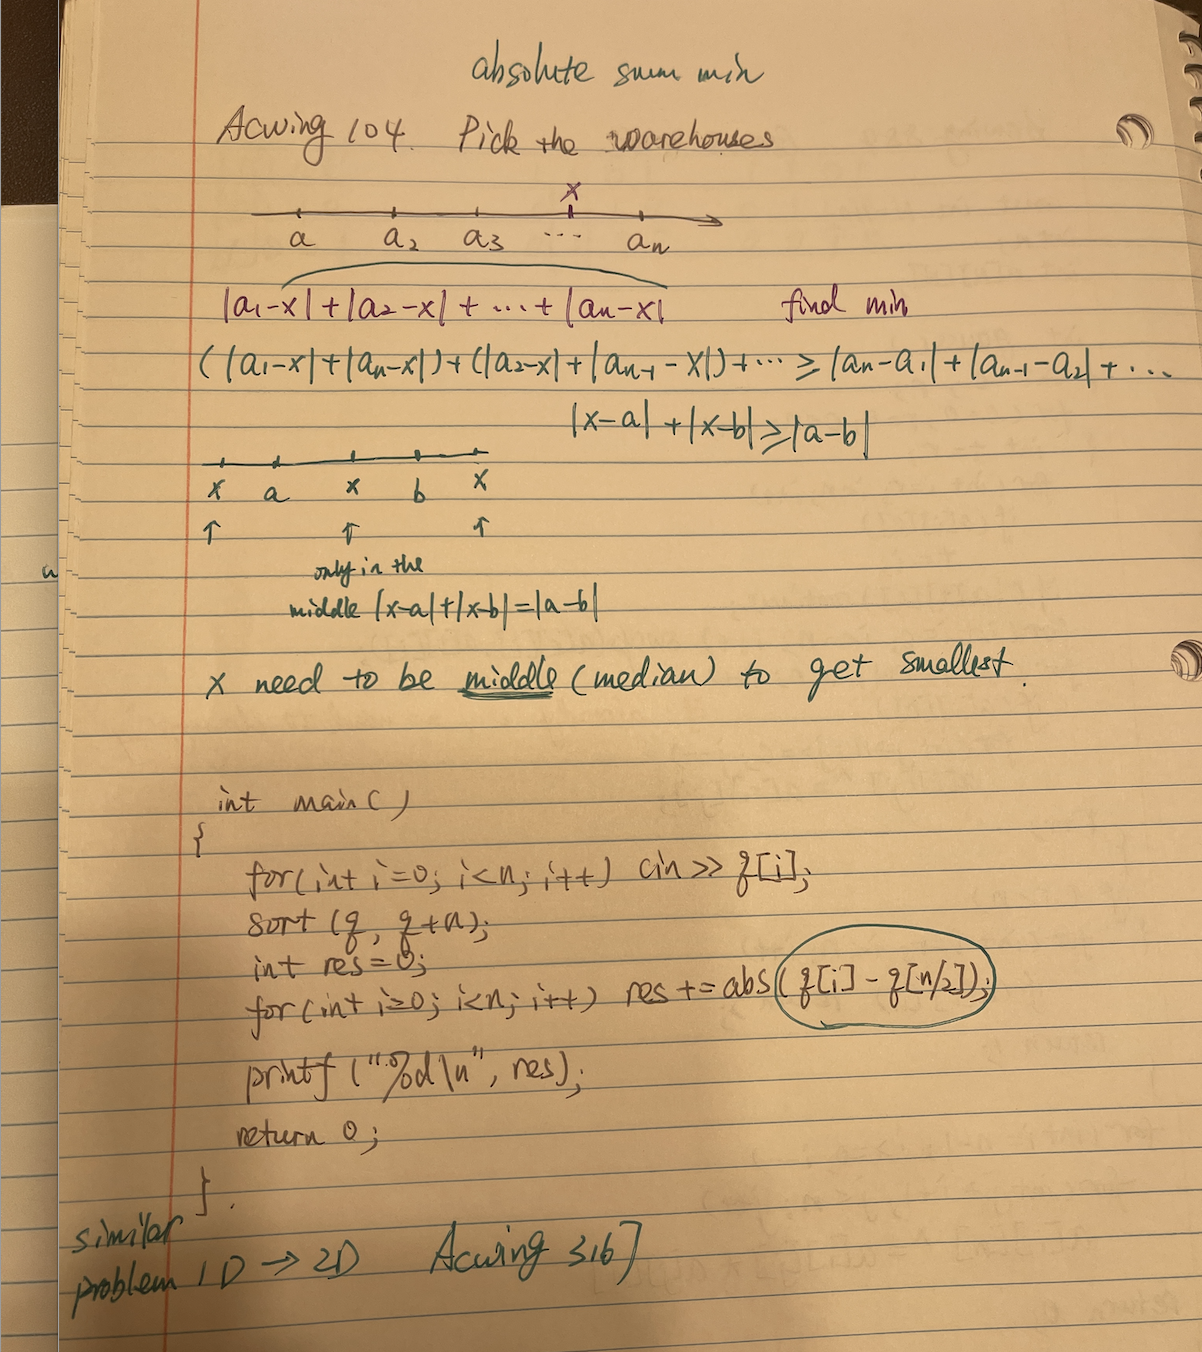 absolute sum min
Acwing 104. Pick the warehouses
x
a a2 a3 ... an
|a1-x|+|a2-x|+...+|an-x| find min
(|a1-x|+|an-x|)+(|a2-x|+|an-1-x|)+... ≥|an-a1|+|an-1-a2|+...
|x-a|+|x-b|≥|a-b|
x a x b x
↑ ↑ ↑
only in the
middle |x-a|+|x-b|=|a-b|
x need to be middle (median) to get smallest.
int main()
{
for(int i=0; i<n; i++) cin >> q[i];
sort (q, q+n);
int res=0;
for(int i=0; i<n; i++) res += abs(q[i]-q[n/2]);
printf ("%d\n", res);
return 0;
}.
similar
problem 1D → 2D Acwing 3167